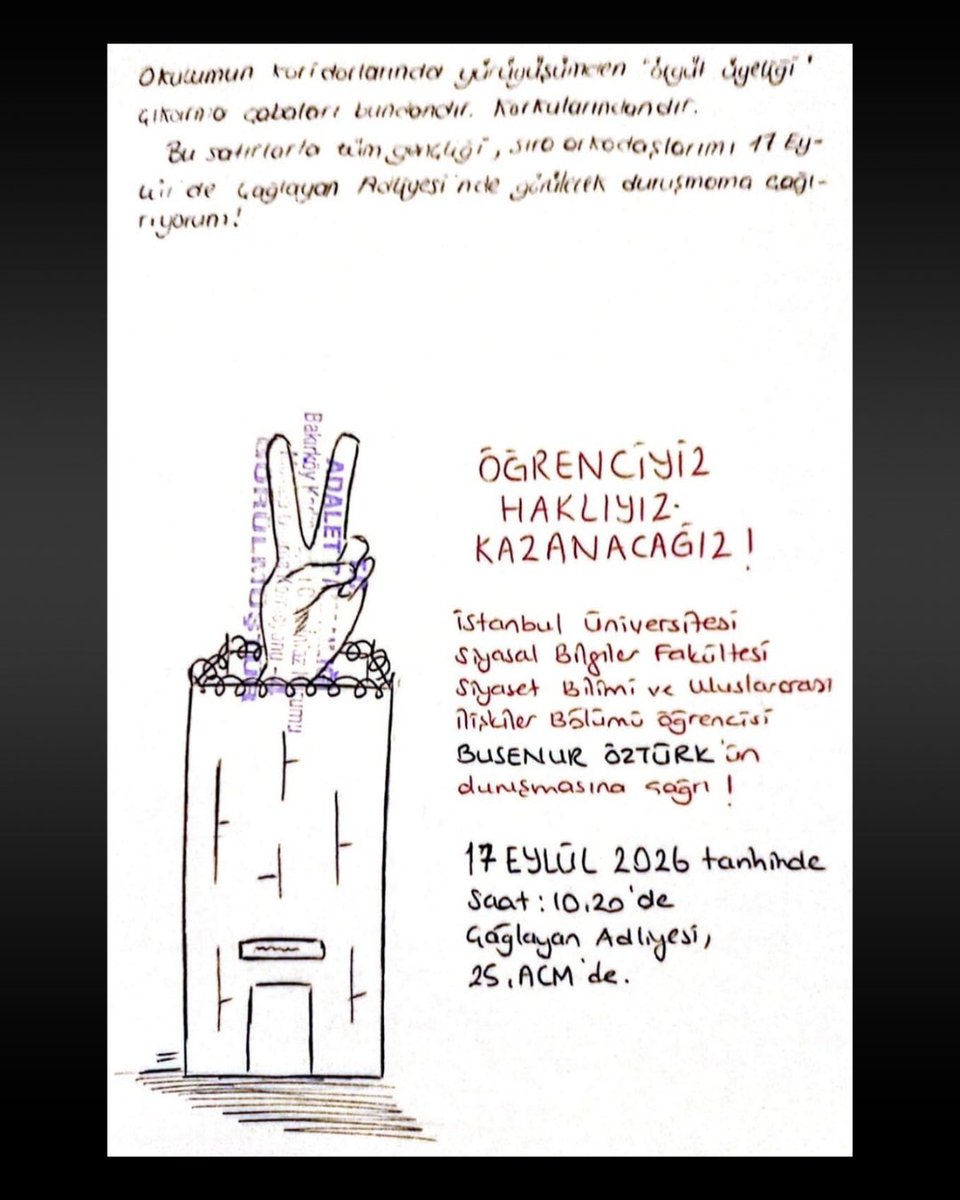 Okulumun koridorlarında yürüyüşümden "örgüt üyeliği"
çıkarma çabaları bundandır. Korkularındandır.
Bu satırlarla tüm gençliği, sıra arkadaşlarımı 17 Ey-
lül'de Çağlayan Adliyesi'nde görülecek duruşmama çağı-
rıyorum!
Bakırköy
ADALET
GÖRÜLMÜŞTÜR
ÖĞRENCİYİZ
HAKLIYIZ.
KAZANACAĞIZ!
İstanbul Üniversitesi
Siyasal Bilgiler Fakültesi
Siyaset Bilimi ve Uluslararası
İlişkiler Bölümü öğrencisi
BUSENUR ÖZTÜRK'ün
duruşmasına çağrı!
17 EYLÜL 2026 tarihinde
Saat: 10.20'de
Çağlayan Adliyesi,
25. ACM'de.